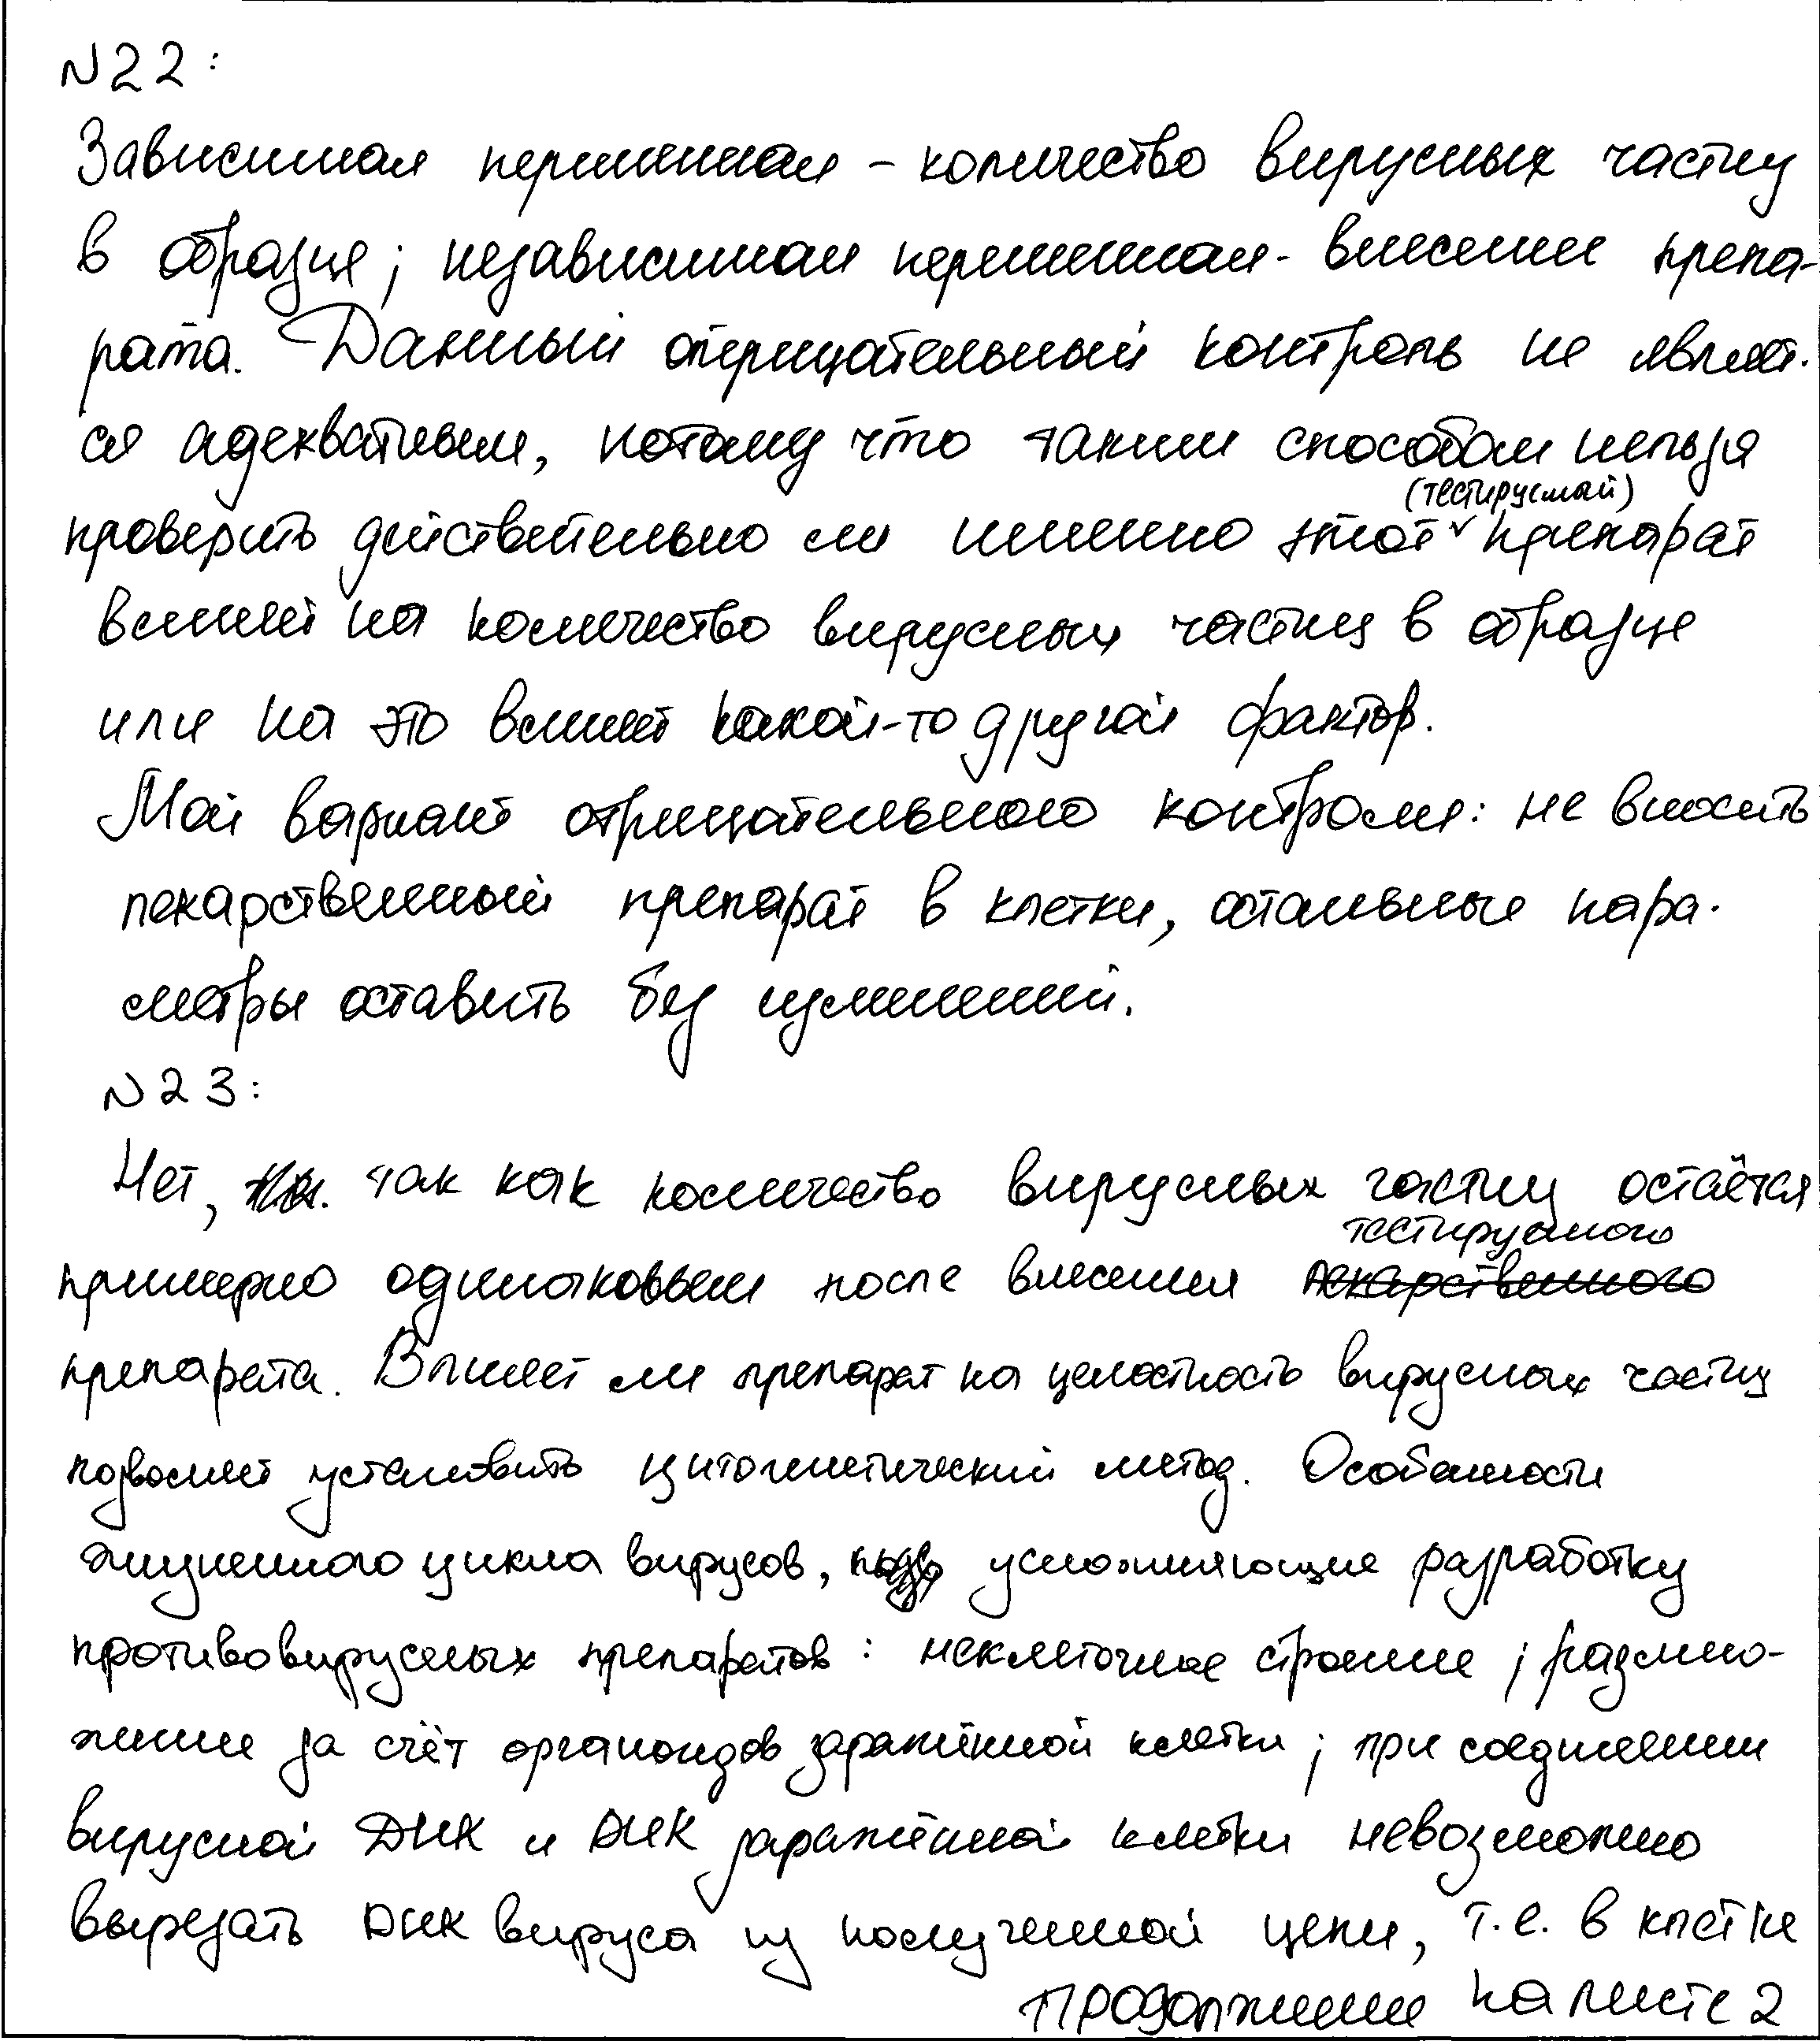 N22:
Зависимая переменная - количество вирусных частиц
в образце; независимая переменная - внесение препа-
рата. Данный отрицательный контроль не являет-
ся адекватным, потому что таким способом нельзя
(тестируемый)
проверить действительно ли именно этот препарат
влияет на количество вирусных частиц в образце
или на это влияет какой-то другой фактор.
Мой вариант отрицательного контроля: не вносить
лекарственный препарат в клетки, остальные пара-
метры оставить без изменений.
N23:
Нет, так как количество вирусных частиц остаётся
тестируемого
примерно одинаковым после внесения лекарственного
препарата. Влияет ли препарат на целостность вирусных частиц
позволяет установить цитогенетический метод. Особенности
жизненного цикла вирусов, усложняющие разработку
противовирусных препаратов: неклеточное строение; размно-
жение за счёт органоидов заражённой клетки; при соединении
вирусной ДНК и ДНК заражённой клетки невозможно
вырезать ДНК вируса из полученной цепи, т.е. в клетке
продолжение на листе 2